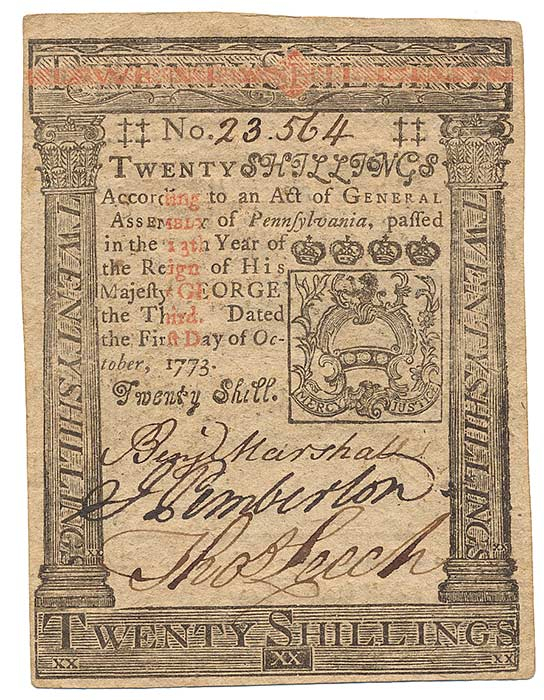 TWENTY SHILLINGS
No. 23.564
TWENTY SHILLINGS
According to an Act of GENERAL
ASSEMBLY of Pennſylvania, paſſed
in the 13th Year of
the Reign of His
Majeſty GEORGE
the Third. Dated
the Firſt Day of Oc-
tober, 1773.
Twenty Shill.
MERCY JUSTICE
TWENTY SHILLINGS
TWENTY SHILLINGS
Benj Marshall
J Pemberton
Thos Leech
XX XX
XX XX
TWENTY SHILLINGS
XX XX XX